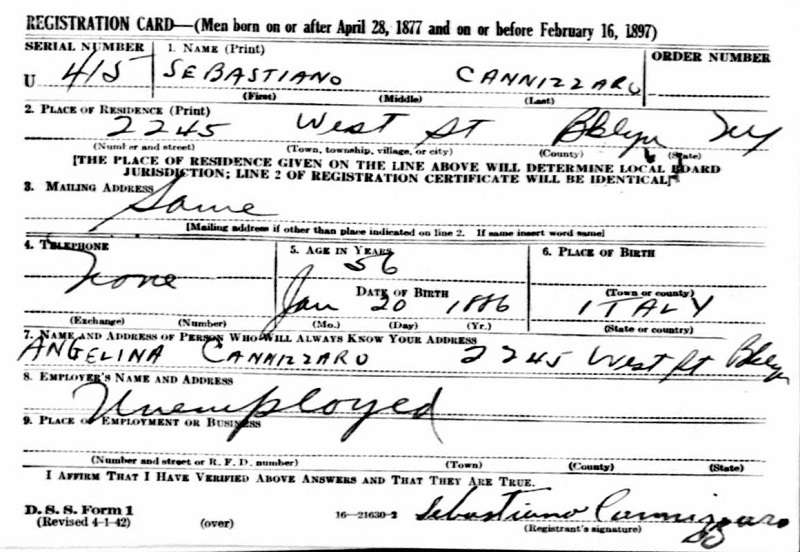 REGISTRATION CARD—(Men born on or after April 28, 1877 and on or before February 16, 1897)
SERIAL NUMBER 1. NAME (Print) ORDER NUMBER
U 415 SEBASTIANO CANNIZZARO
(First) (Middle) (Last)
2. PLACE OF RESIDENCE (Print)
2245 West St Bklyn NY
(Number and street) (Town, township, village, or city) (County) (State)
[THE PLACE OF RESIDENCE GIVEN ON THE LINE ABOVE WILL DETERMINE LOCAL BOARD
JURISDICTION; LINE 2 OF REGISTRATION CERTIFICATE WILL BE IDENTICAL]
3. MAILING ADDRESS
Same
[Mailing address if other than place indicated on line 2. If same insert word same]
4. TELEPHONE 5. AGE IN YEARS 6. PLACE OF BIRTH
None 56
DATE OF BIRTH (Town or county)
Jan 20 1886 ITALY
(Exchange) (Number) (Mo.) (Day) (Yr.) (State or country)
7. NAME AND ADDRESS OF PERSON WHO WILL ALWAYS KNOW YOUR ADDRESS
ANGELINA CANNIZZARO 2245 West St Bklyn
8. EMPLOYER'S NAME AND ADDRESS
Unemployed
9. PLACE OF EMPLOYMENT OR BUSINESS
(Number and street or R. F. D. number) (Town) (County) (State)
I AFFIRM THAT I HAVE VERIFIED ABOVE ANSWERS AND THAT THEY ARE TRUE.
D. S. S. Form 1
(Revised 4-1-42) (over) 16—21630-2 Sebastiano Cannizzaro
(Registrant's signature)